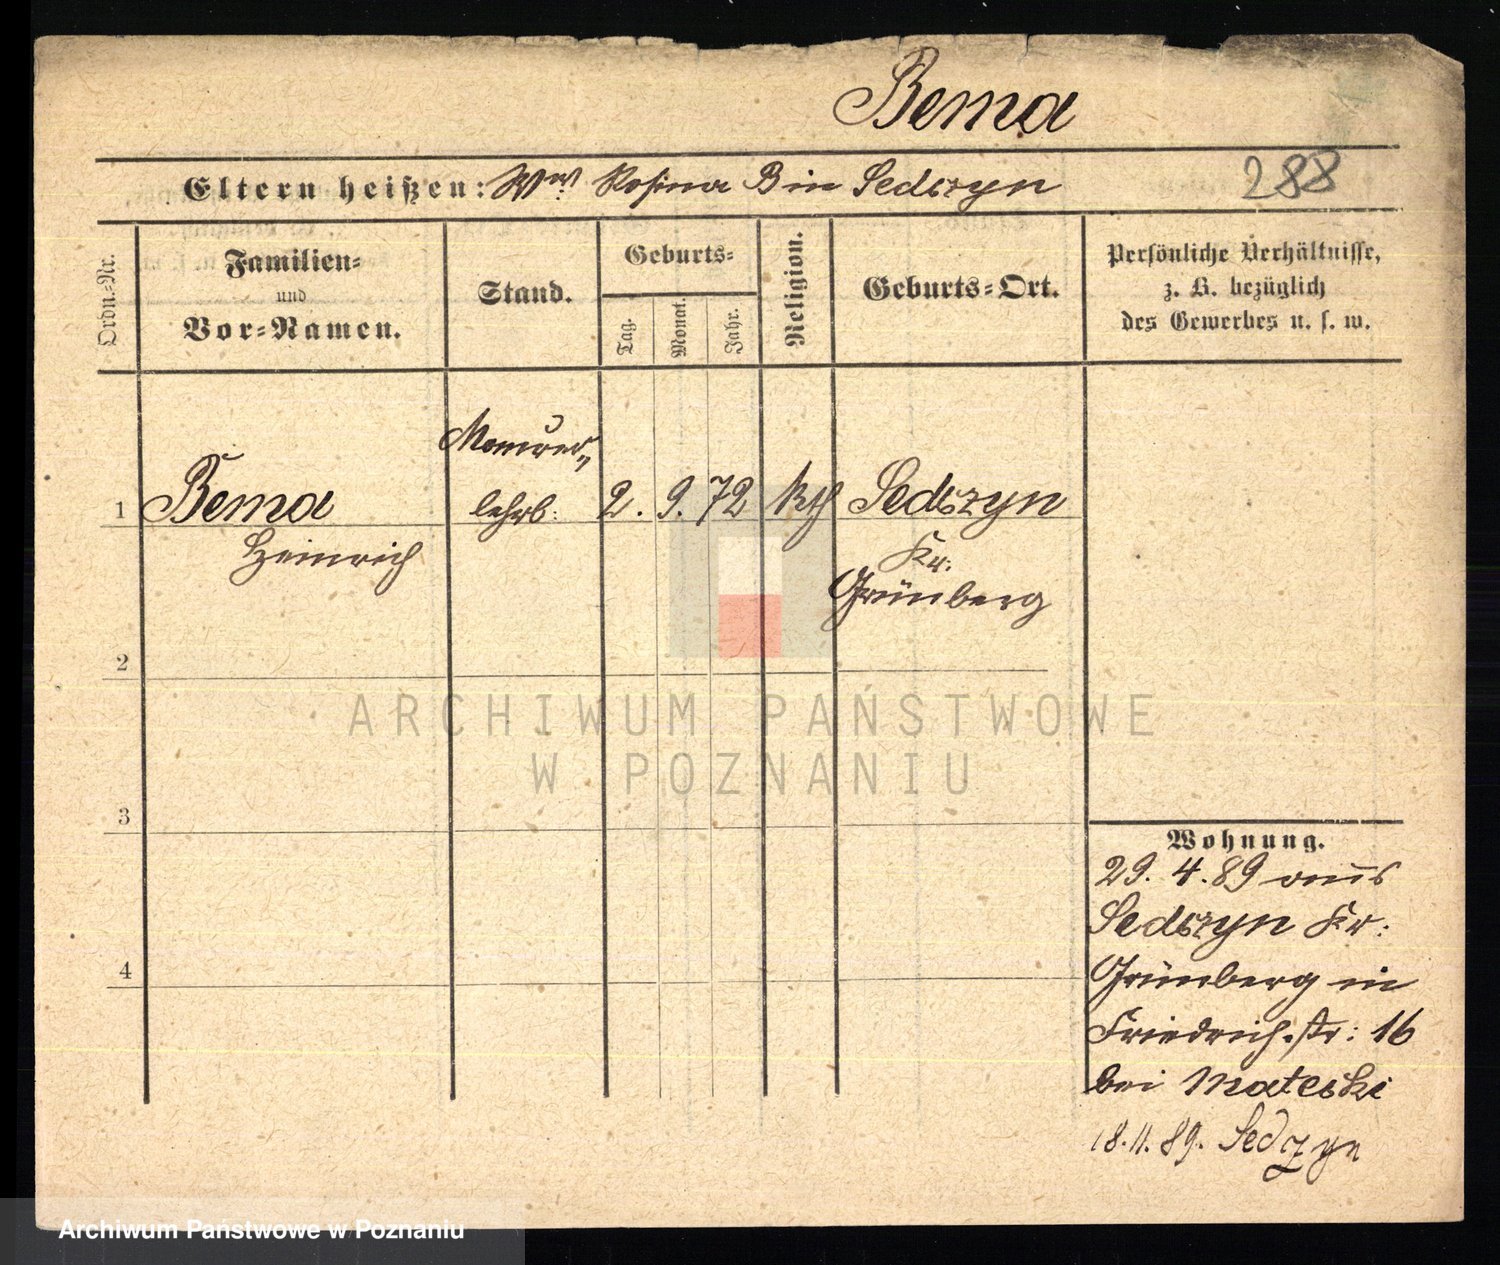 Bema
Eltern heißen: Wwe Rosina B in Sedczyn
288
Ordn.-Nr.
Familien-
und
Vor-Namen.
Stand.
Geburts-
Tag.
Monat.
Jahr.
Religion.
Geburts-Ort.
Persönliche Verhältnisse,
z. B. bezüglich
des Gewerbes u. s. w.
Maurer-
1 Bema lehrb. 2. 9. 72 kth Sedczyn
Heinrich Kr.
Grünberg
2
3
4
Wohnung.
29. 4. 89 aus
Sedczyn Kr:
Grünberg in
Friedrich-str: 16
bei Mateski
18.11.89. Sedczyn
ARCHIWUM PAŃSTWOWE
W POZNANIU
Archiwum Państwowe w Poznaniu